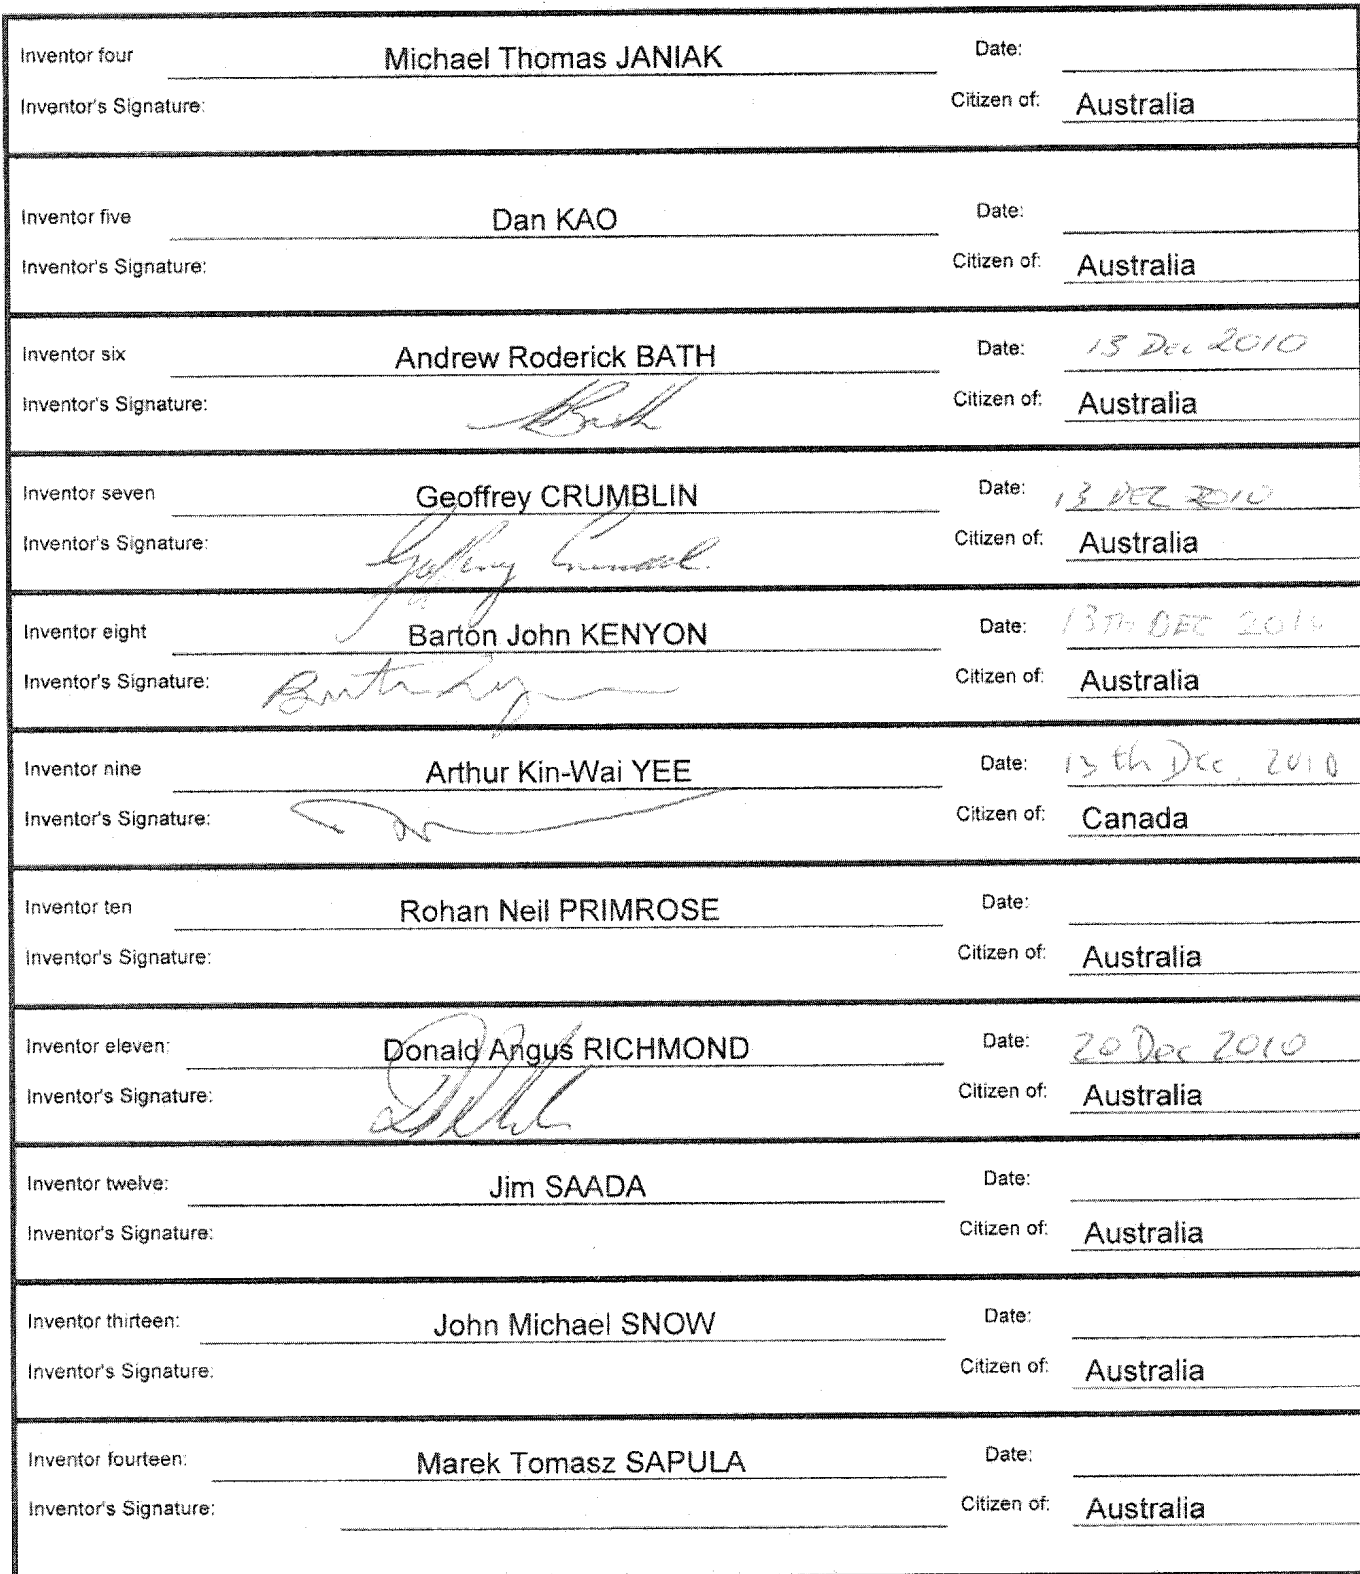 Inventor four Michael Thomas JANIAK Date:
Inventor's Signature: Citizen of: Australia
Inventor five Dan KAO Date:
Inventor's Signature: Citizen of: Australia
Inventor six Andrew Roderick BATH Date: 13 Dec 2010
Inventor's Signature: ABath Citizen of: Australia
Inventor seven Geoffrey CRUMBLIN Date: 13 DEC 2010
Inventor's Signature: Citizen of: Australia
Inventor eight Barton John KENYON Date: 13TH DEC 2010
Inventor's Signature: Citizen of: Australia
Inventor nine Arthur Kin-Wai YEE Date: 13th Dec, 2010
Inventor's Signature: Citizen of: Canada
Inventor ten Rohan Neil PRIMROSE Date:
Inventor's Signature: Citizen of: Australia
Inventor eleven: Donald Angus RICHMOND Date: 20 Dec 2010
Inventor's Signature: Citizen of: Australia
Inventor twelve: Jim SAADA Date:
Inventor's Signature: Citizen of: Australia
Inventor thirteen: John Michael SNOW Date:
Inventor's Signature: Citizen of: Australia
Inventor fourteen: Marek Tomasz SAPULA Date:
Inventor's Signature: Citizen of: Australia